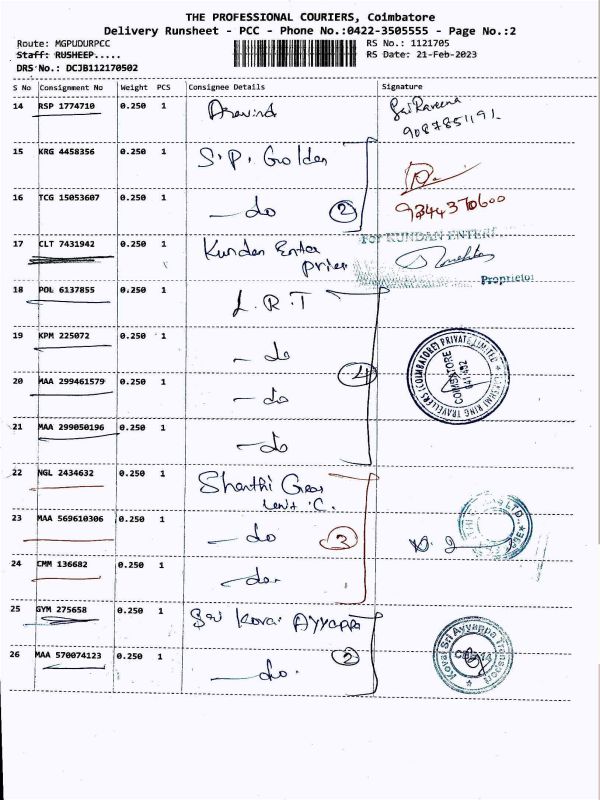 THE PROFESSIONAL COURIERS, Coimbatore
Delivery Runsheet - PCC - Phone No.:0422-3505555 - Page No.:2
Route: MGPUDURPCC
RS No.: 1121705
Staff: RUSHEEP.....
RS Date: 21-Feb-2023
DRS No.: DCJB112170502
S No Consignment No Weight PCS Consignee Details Signature
14 RSP 1774710 0.250 1 Aravind Sai Raveena
9087851191
15 KRG 4458356 0.250 1 S.P. Golden
16 TCG 15053607 0.250 1 — do 2 9344370600
17 CLT 7431942 0.250 1 Kundan Enter
prises
KUNDAN ENTER
Proprietor
18 POL 6137855 0.250 1 L.R.T
19 KPM 225072 0.250 1 — do
20 MAA 299461579 0.250 1 — do 4
(COIMBATORE) PRIVATE LIMITED
RING TRAVELLERS
COIMBATORE
641 402
21 MAA 299050196 0.250 1 — do
22 NGL 2434632 0.250 1 Shanthi Gear
Unit 'C.
23 MAA 569610306 0.250 1 — do 3
LTD.
24 CMM 136682 0.250 1 — do.
25 GYM 275658 0.250 1 Sri Kovai Ayyappa
26 MAA 570074123 0.250 1 — do. 2
Kovai Sri Ayyappa Transport